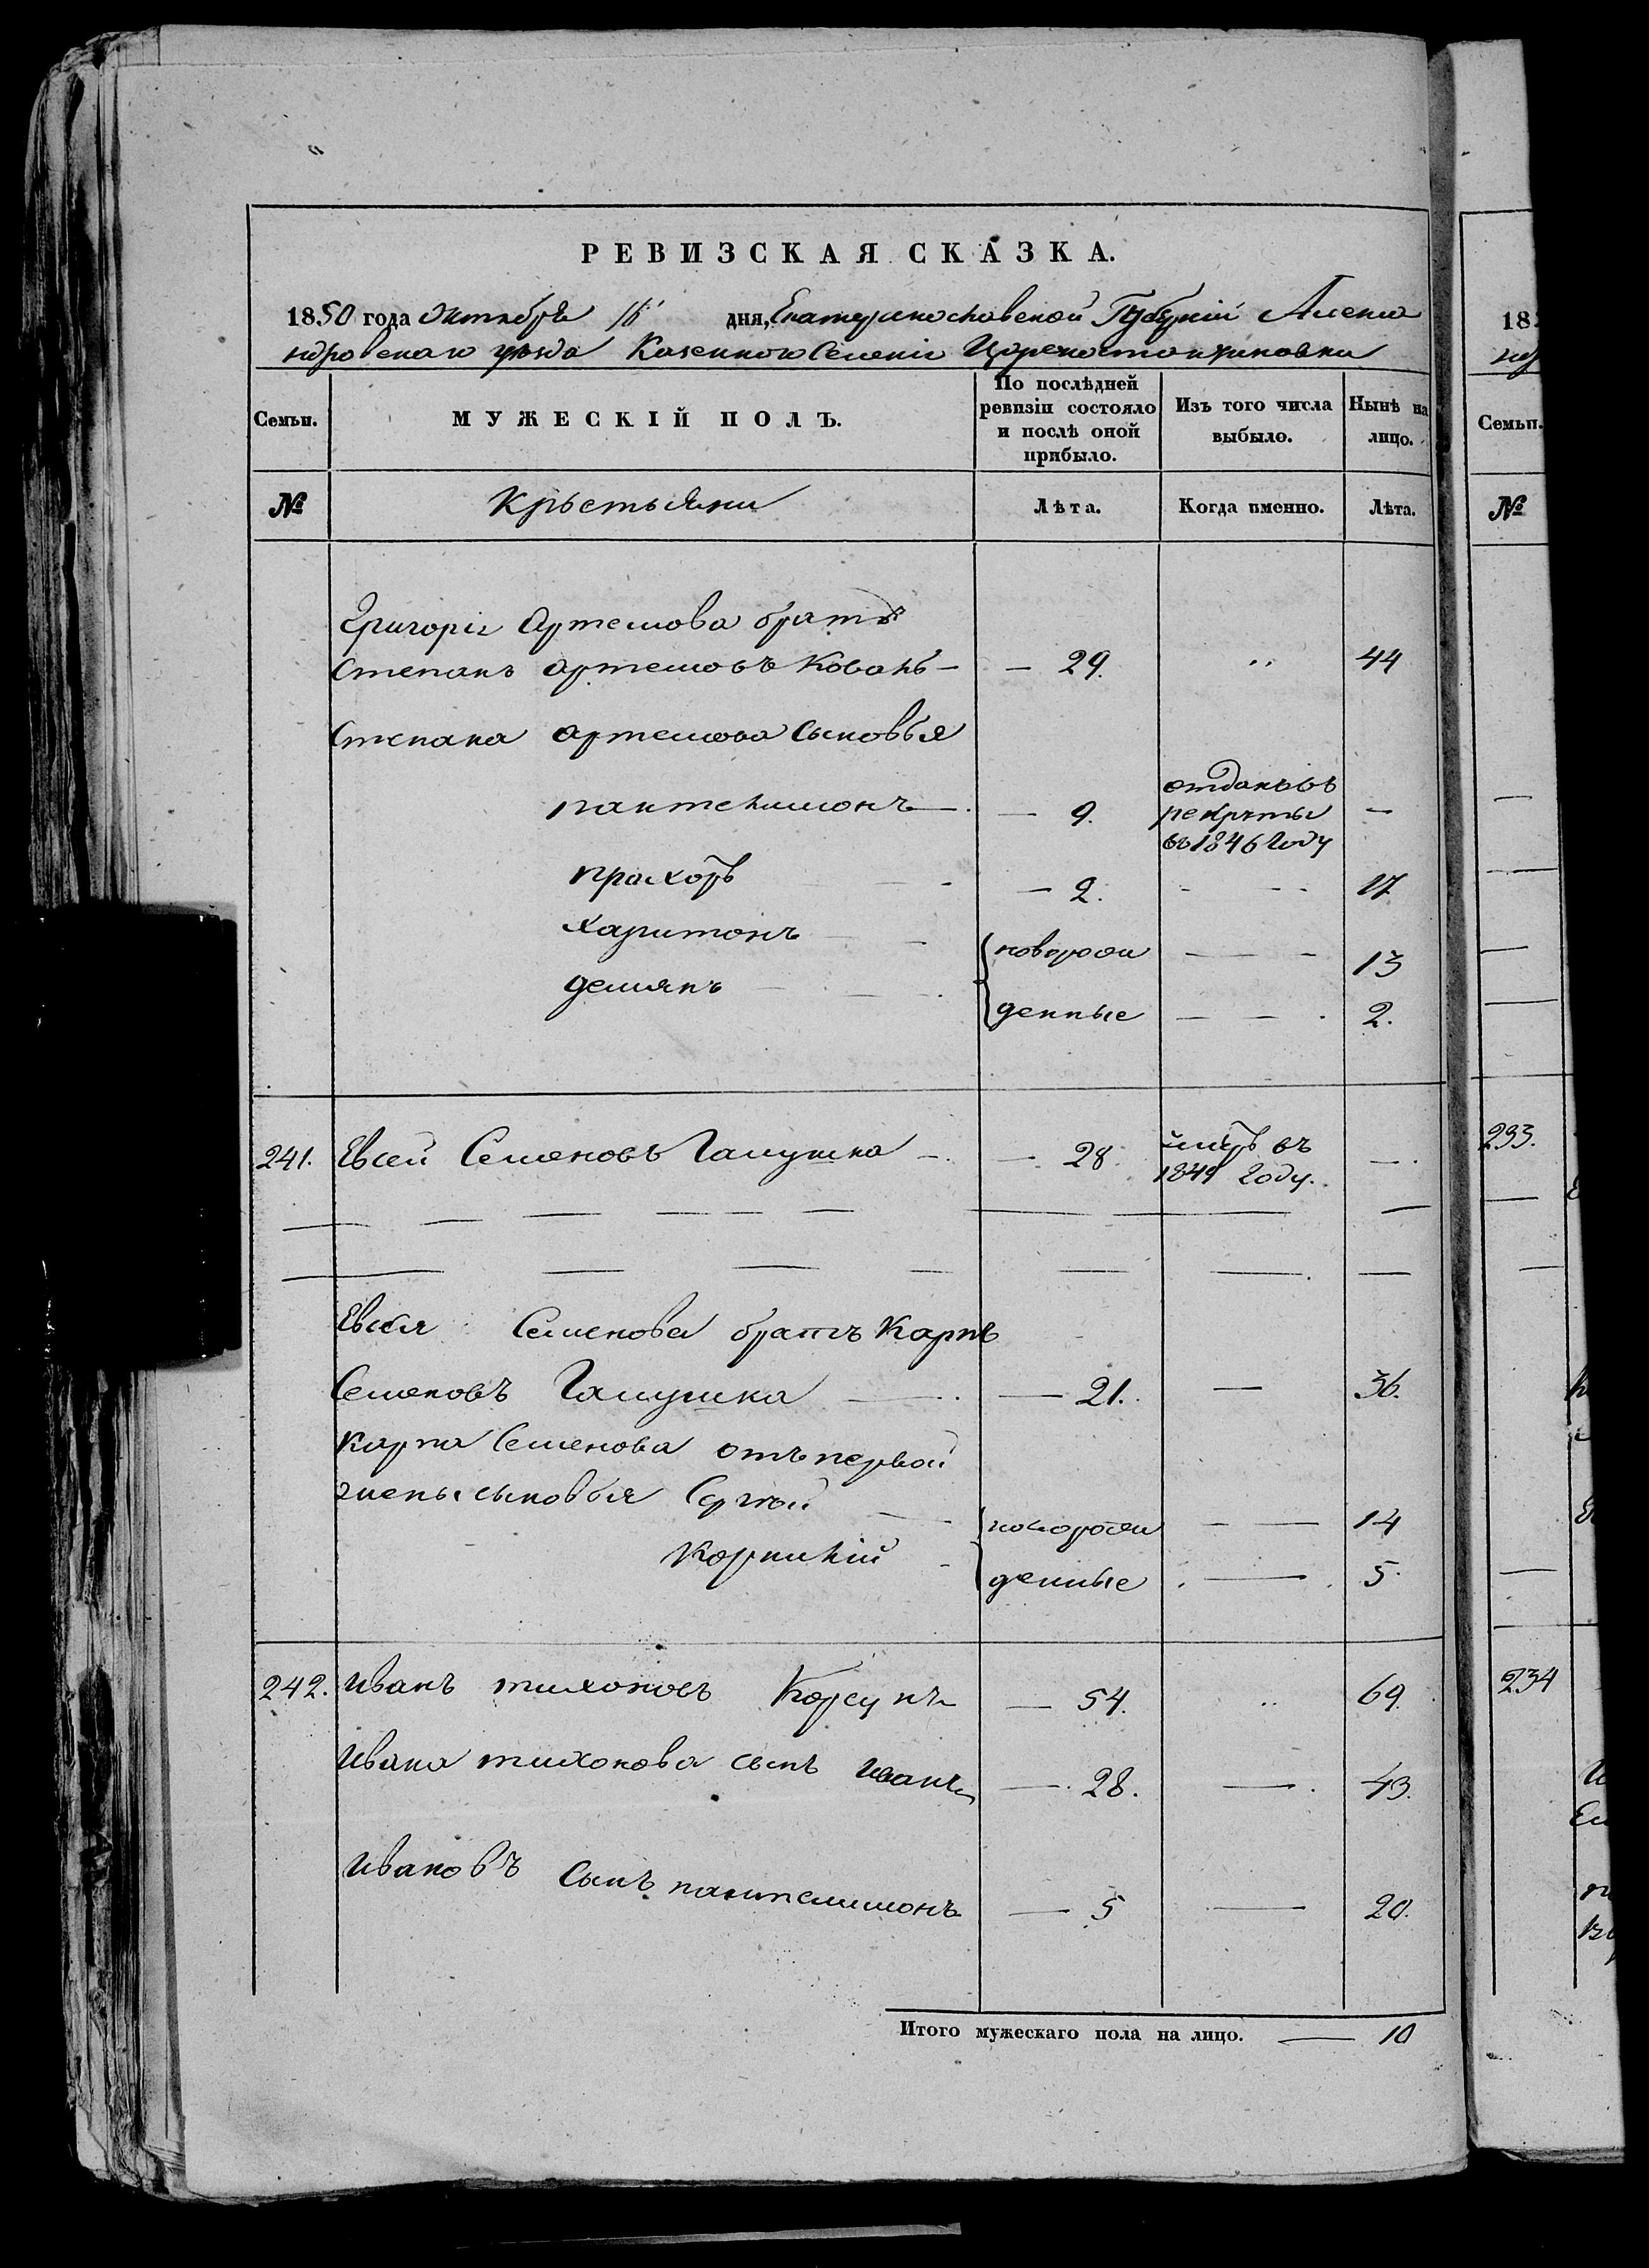 РЕВИЗСКАЯ СКАЗКА.
1850 года Октября 16 дня, Екатеринославской Губерніи Алекса
ндровскаго уѣзда Казенного Селенія Цареконстантиновки
Семьи. МУЖЕСКІЙ ПОЛЪ. По послѣдней ревизіи состояло и послѣ оной прибыло. Изъ того числа выбыло. Нынѣ на лицо.
№ Крестьяни Лѣта. Когда именно. Лѣта.
Григорія Артемова братъ
Степанъ Артемовъ Коваль — — 29. " 44
Степана Артемова сыновья
пантелимонъ — — 9. отданъ въ рекруты въ 1846 году —
прохоръ — 2. — 17
харитонъ новорож 13
демянъ денные 2.
241. Евсей Семеновъ Галушка — — 28. умеръ въ 1849 году. —
Евсея Семенова братъ Карпъ
Семеновъ Галушка — 21. — 36.
Карпа Семенова отъ первой
жены сыновья Сергѣй новорож — 14
Корнилій денные — 5.
242. Иванъ тихоновъ Корсунъ — 54. " 69.
Ивана тихонова сынъ иванъ — 28. — 43.
Ивановъ сынъ пантелимонъ — 5 — 20.
Итого мужескаго пола на лицо. — 10
18
Семьи.
№
233.
234